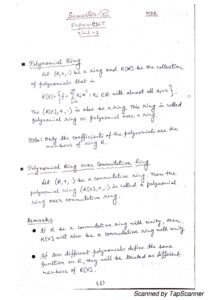 Semester-VI
Paper-C13T
Unit-2
• Polynomial Ring
Let (R,+,.) be a ring and R[x] be the collection
of polynomials that is
R[x] = { f = Σ aᵢxⁱ : aᵢ ∈ R with almost all aᵢ = 0 }.
The (R[x],+,.) is also be a ring. This ring is called
polynomial ring or polynomial over a ring.
Note: Only the coefficients of the polynomials are the
members of ring R.
• Polynomial Ring over Commutative Ring
Let (R,+,.) be a commutative ring. Then the
polynomial ring (R[x],+,.) is called a polynomial
ring over commutative ring.
Remarks
• If R be a commutative ring with unity, then
R[x] will also be a commutative ring with unity.
• If two different polynomials define the same
function on R, they will be treated as different
members of R[x].
(1)
Scanned by TapScanner